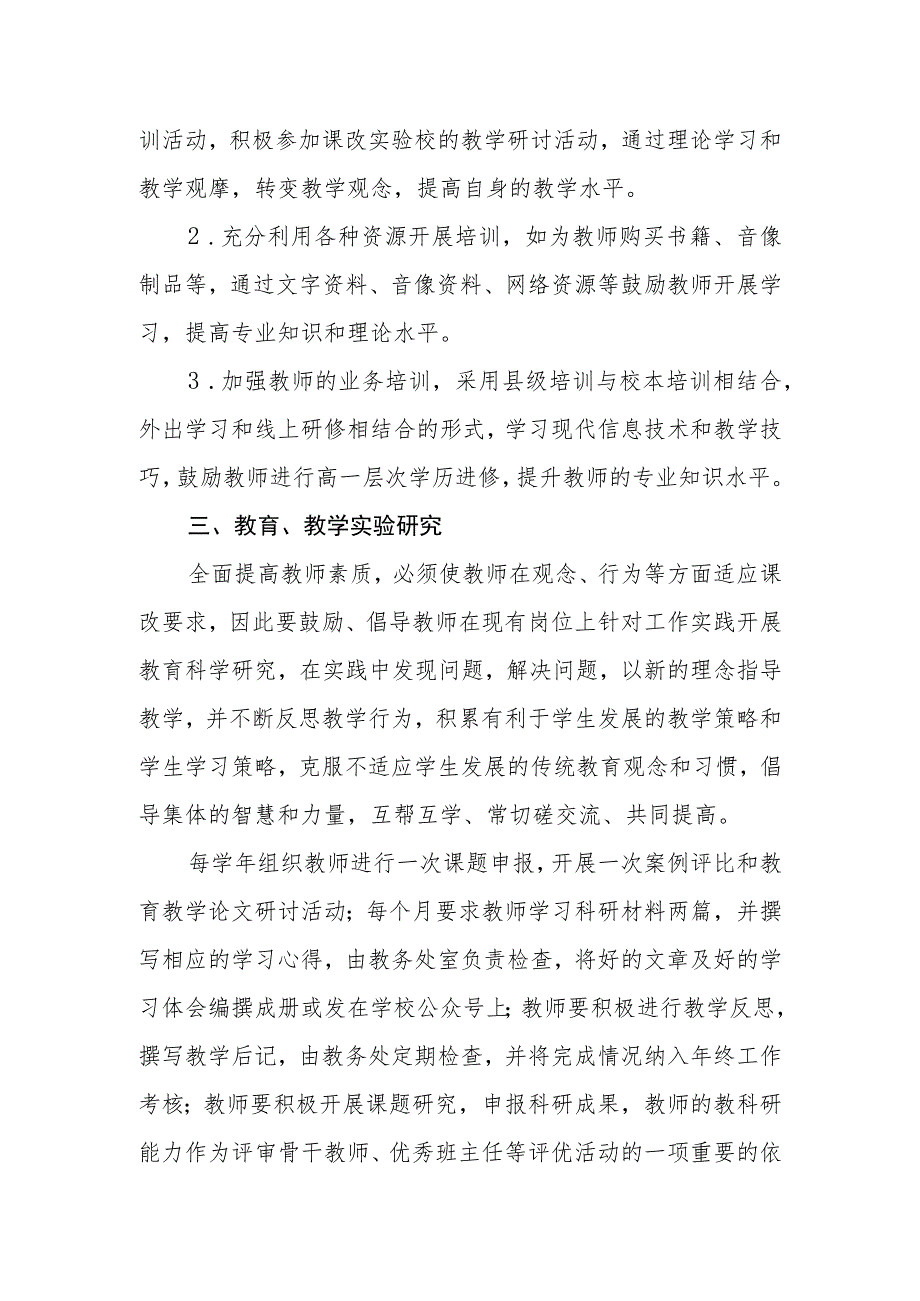 训活动，积极参加课改实验校的教学研讨活动，通过理论学习和
教学观摩，转变教学观念，提高自身的教学水平。
2.充分利用各种资源开展培训，如为教师购买书籍、音像
制品等，通过文字资料、音像资料、网络资源等鼓励教师开展学
习，提高专业知识和理论水平。
3.加强教师的业务培训，采用县级培训与校本培训相结合，
外出学习和线上研修相结合的形式，学习现代信息技术和教学技
巧，鼓励教师进行高一层次学历进修，提升教师的专业知识水平。
三、教育、教学实验研究
全面提高教师素质，必须使教师在观念、行为等方面适应课
改要求，因此要鼓励、倡导教师在现有岗位上针对工作实践开展
教育科学研究，在实践中发现问题，解决问题，以新的理念指导
教学，并不断反思教学行为，积累有利于学生发展的教学策略和
学生学习策略，克服不适应学生发展的传统教育观念和习惯，倡
导集体的智慧和力量，互帮互学、常切磋交流、共同提高。
每学年组织教师进行一次课题申报，开展一次案例评比和教
育教学论文研讨活动；每个月要求教师学习科研材料两篇，并撰
写相应的学习心得，由教务处室负责检查，将好的文章及好的学
习体会编撰成册或发在学校公众号上；教师要积极进行教学反思，
撰写教学后记，由教务处定期检查，并将完成情况纳入年终工作
考核；教师要积极开展课题研究，申报科研成果，教师的教科研
能力作为评审骨干教师、优秀班主任等评优活动的一项重要的依